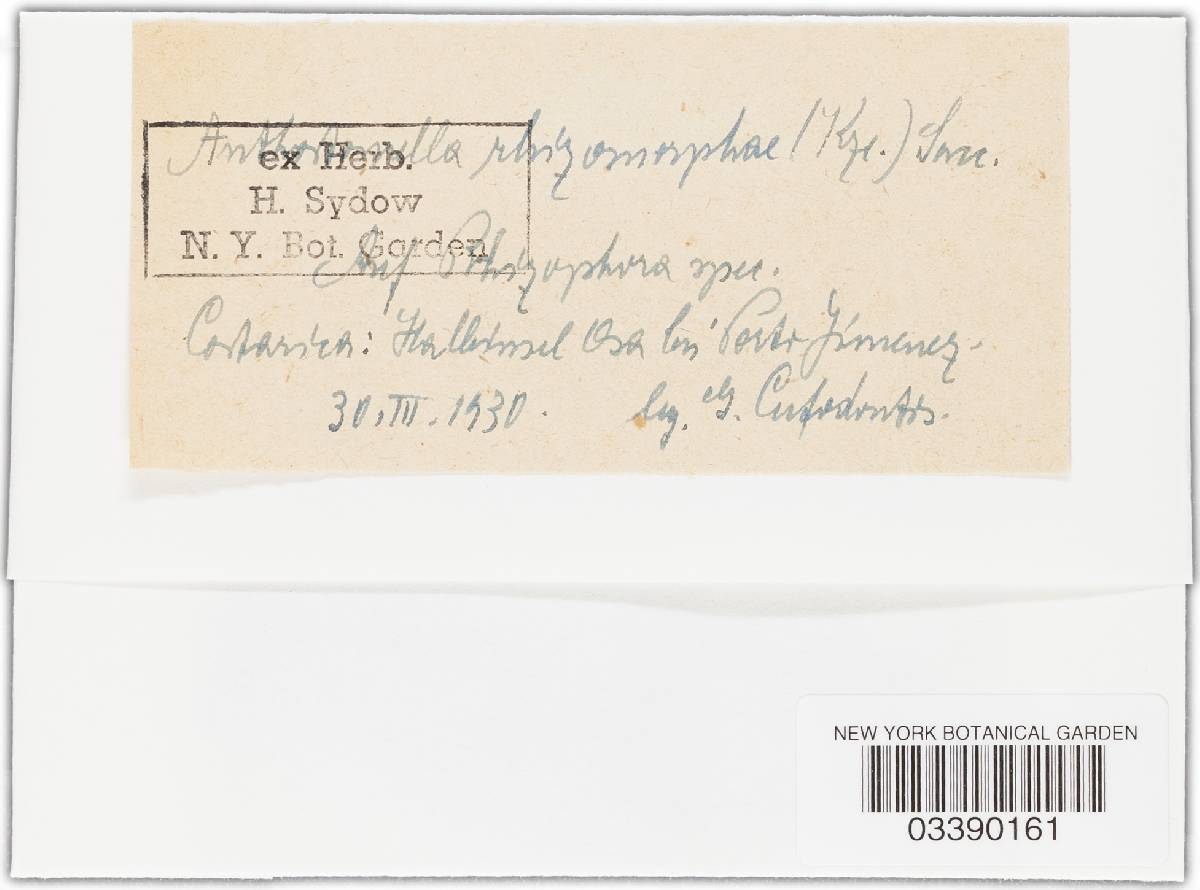 Anthostomella rhizomorphae (Kze.) Sacc.
ex Herb.
H. Sydow
N. Y. Bot. Garden
Auf Rhizophora spec.
Costarica: Halbinsel Osa bei Porto Jimenez.
30.III.1930. leg. G. Cufodontis.
NEW YORK BOTANICAL GARDEN
03390161